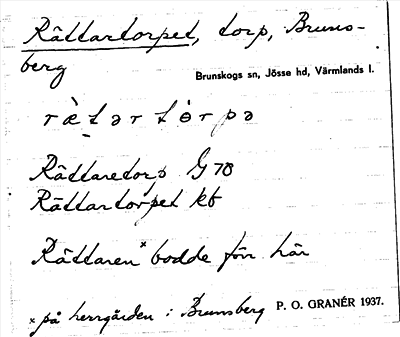 Rättartorpet, torp, Bruns-
berg
Brunskogs sn, Jösse hd, Värmlands l.
r æ̀ t ə r t ò r p ə
Rättaretorp G 78
Rättartorpet kb
Rättaren× bodde förr här
× på herrgården i Brunsberg P. O. GRANÉR 1937.